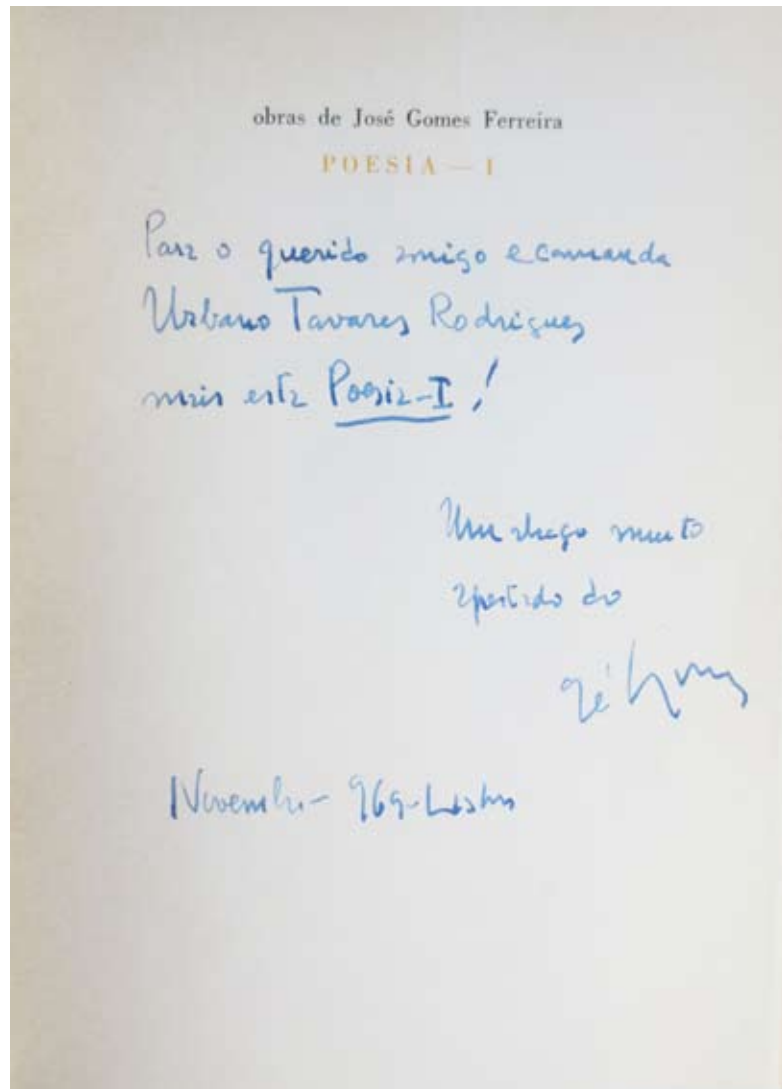 obras de José Gomes Ferreira
POESIA — I
Para o querido amigo e camarada
Urbano Tavares Rodrigues
mais esta Poesia-I!
Um abraço muito
apertado do
Zé Gomes
Novembro - 969 - Lisboa